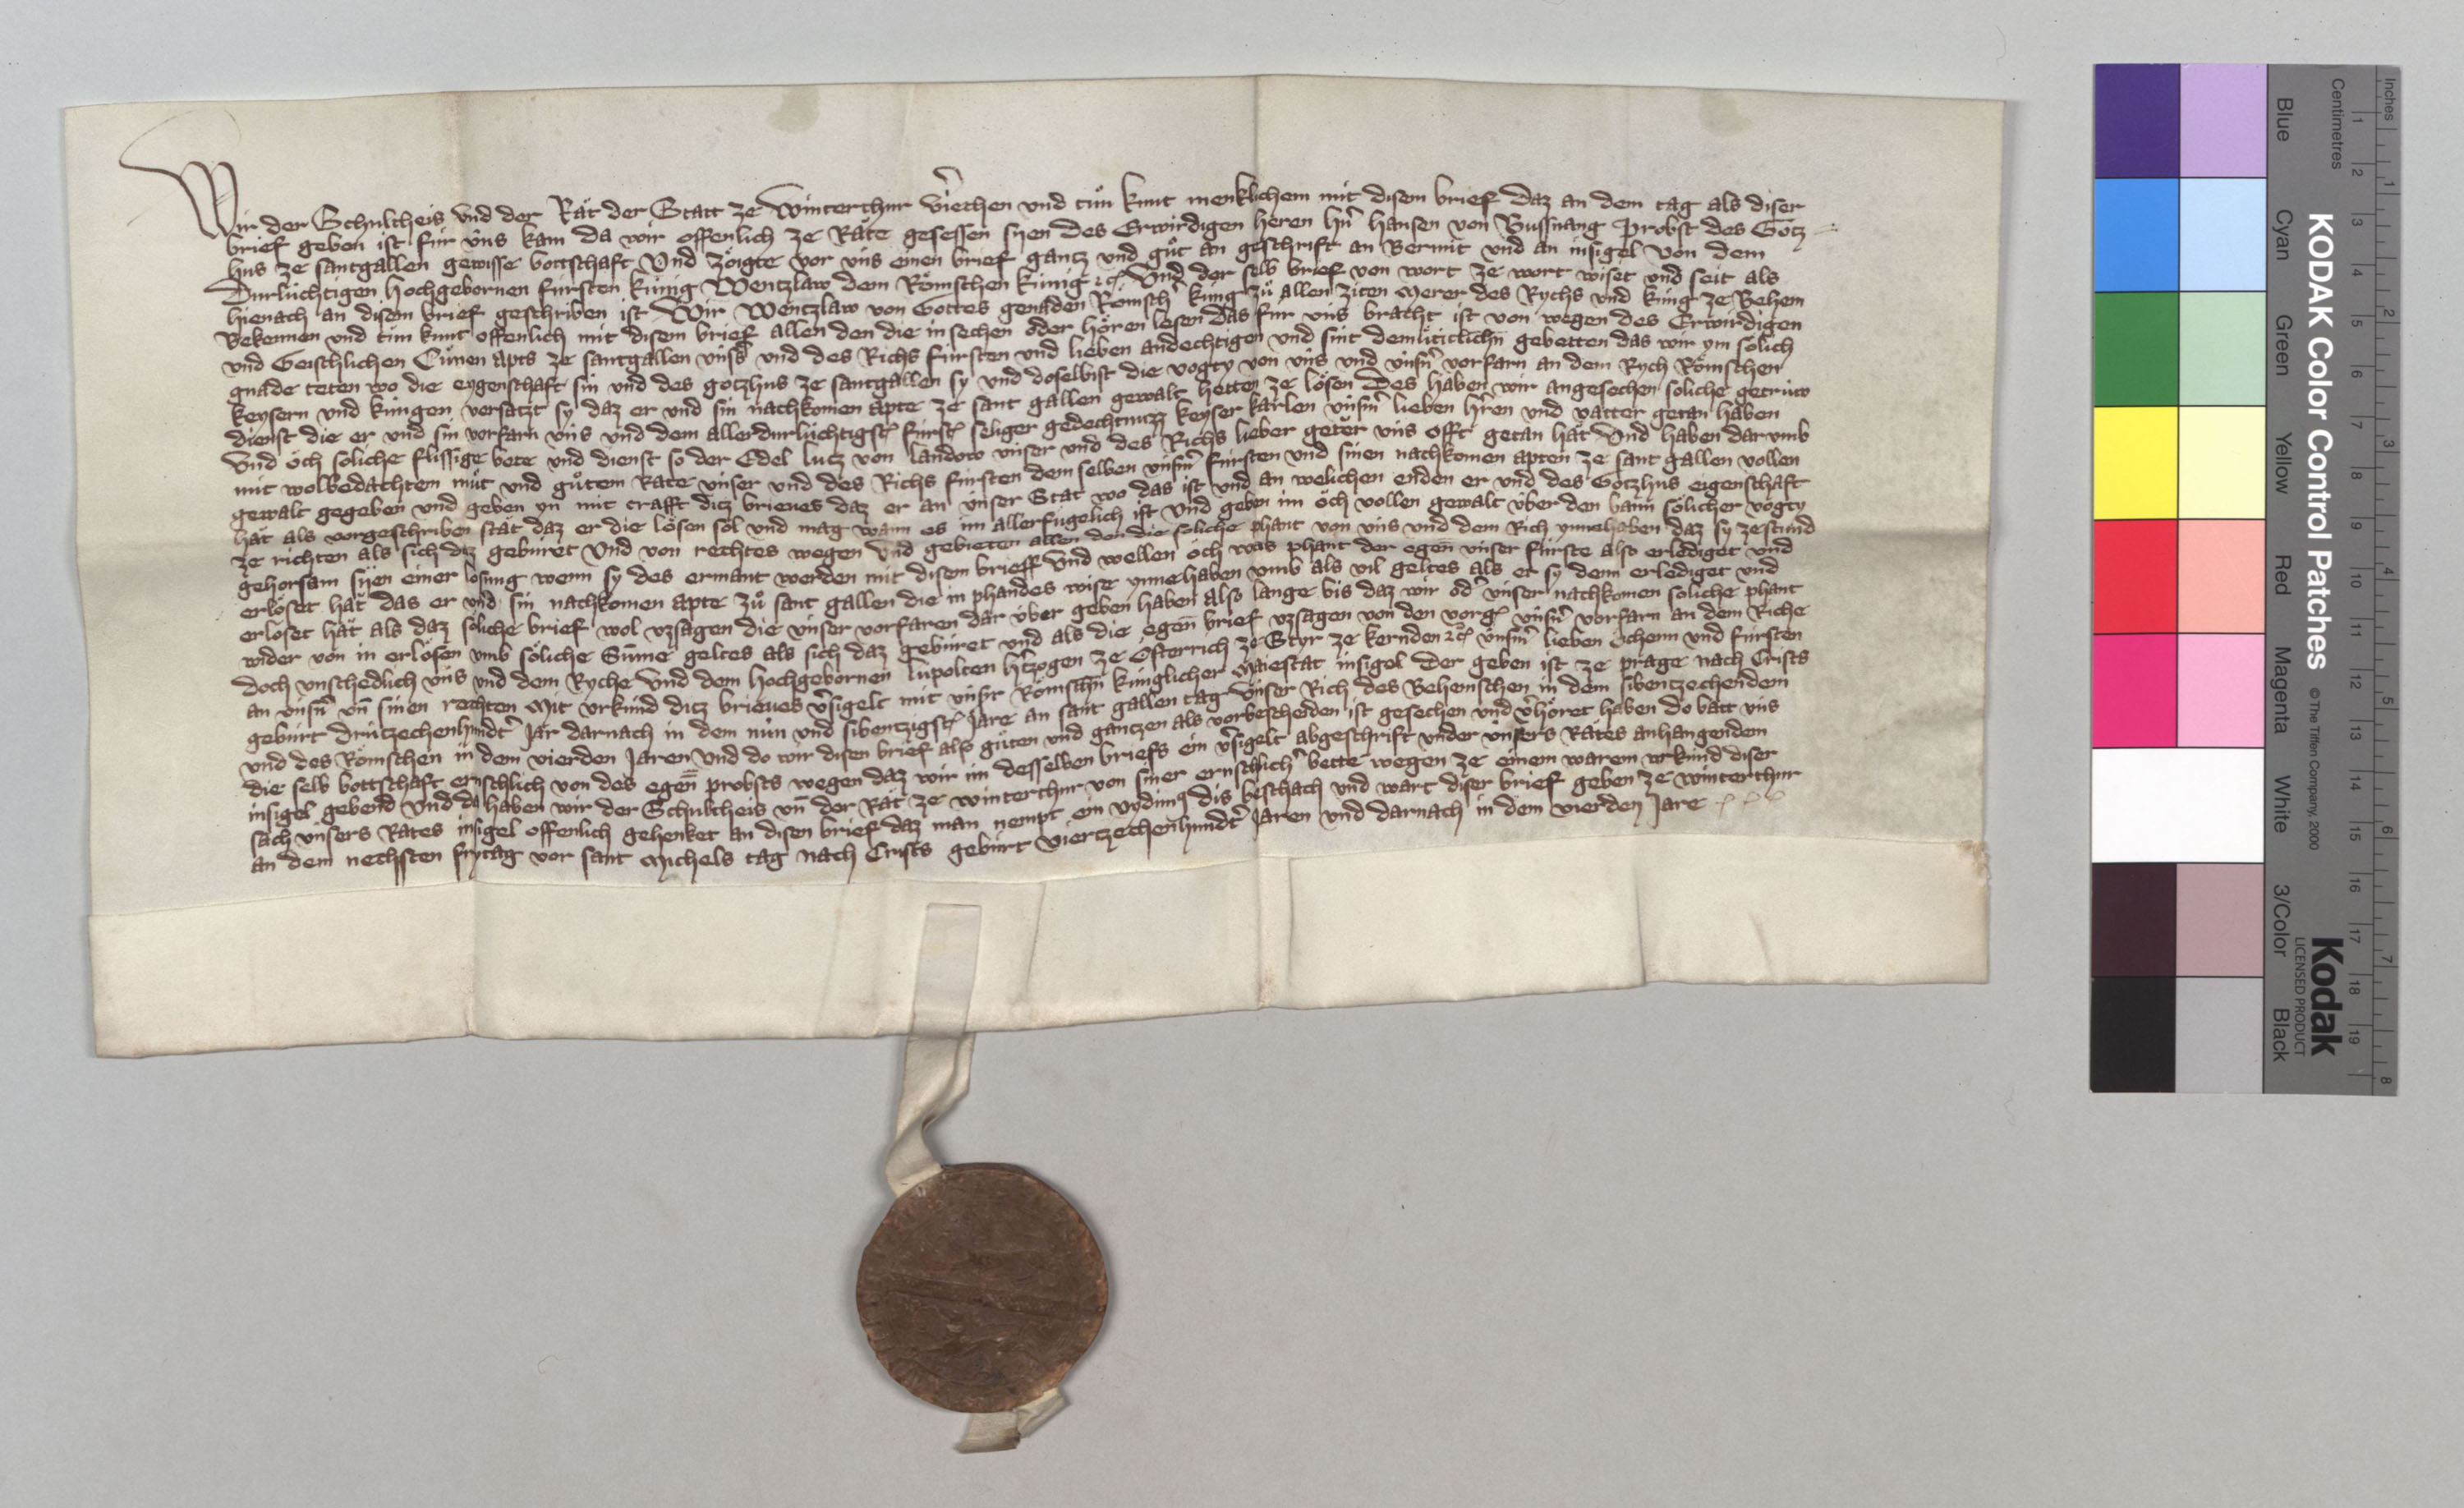 Wir der Schultheis und der Rät der Statt ze Winterthur v̾iechen und tuͦn kunt menklichem mit disem brief daz an dem tag als diser
brief geben ist fuͥr uͥns kam da wir offenlich ze Räte gesessen syen des Erwirdigen heren hn̾ hansen von Bussnang Probst des Gotz
hus ze santgallen gewisse bottschaft Und zoͤigte vor uͥns einen brief gantz und guͦt an geschrift an Bermit und an insigel von dem
Durluͥchtigen hochgebornen fuͥrsten kuͥnig Wentzlaw dem Roͤmschen kuͥnig ꝛc Und der selb brief von wort ze wort wiset und seit als
hienach an disem brief geschriben ist Wir Wentzlaw von Gottes genaden Roͤmsch̾ kuͥng zuͦ allen ziten Merer des Rychs und kuͥng ze Behem
Bekennen und tuͦn kunt offenlich mit disem brief allen den die in sechen oder hoͤren lesen das fuͥr uͥns bracht ist von wegen des Erwirdigen
und Geischlichen Cuͦnen Apts ze santgallen uͥnss̾ und des Richs fuͥrsten und lieben andechtigen und sint demuͤticlichn̄ gebetten das wir ym soͤlich
gnade teten wo die eygenschaft sin und des gotzhus ze santgallen sy und doselbist die vogty von uͥns und uͥnsn̾ vorfarn an dem Rych Roͤmschen
keysern und kuͥngen versatzt sy daz er und sin nachkomen Apte ze sant gallen gewalt hetten ze loͤsen Des haben wir angesechen soliche getruͥw
dienst die er und sin vorfarn uͥns und dem allerdurluͥchtigst̾ fuͥrst̾ seliger gedechtnuzz keyser karlen uͥnsm̾ lieben hr̾en und vatter getan haben
Und oͤch soliche flissige bete und dienst so der Edel lutz von landow uͥnser und des Richs lieber getr̾ uͥns offt getan haͤt Und haben darumb
mit wolbedachtem muͦt und guͦtem Rate uͥnser und des Richs fuͥrsten dem selben uͥnsm̾ fuͥrsten und sinen nachkomen apten ze sant gallen vollen
gewalt gegeben und geben yn mit crafft ditz brieves daz er an uͥnser Stat wo das ist und an welichen enden er und des Gotzhus eigenschaft
haͤt als vorgeschriben stät daz er die loͤsen sol und mag wann es im allerfuͤgelich ist und geben im oͤch vollen gewalt uͥber den bann soͤlicher vogty
ze richten als sich daz gebuͥret Und von rechtes wegen und gebieten allen den die soliche phant von uͥns und dem Rich ynnehaben daz sy zestund
gehorsam syen einer losung wenn sy des ermant werden mit disem brieff Und wellen oͤch was phant der egen̄ uͥnser fuͥrste also erlediget und
erloͤset haͤt das er und sin nachkomen apte zuͦ sant gallen die in phandes wise ynnehaben umb als vil geltes als er sy denn erlediget und
erloͤset haͤt als daz soliche brief wol uzsagen die uͥnser vorfaren dar uͥber geben haben also lange bis daz wir od̾ uͥnser nachkomen soliche phant
wider von in erloͤsen umb soliche Sum̄e geltes als sich daz gebuͥret und als die egen̄ brief uzsagen von den vorg̾ uͥnsn̾ vorfarn an dem Riche
doch unschedlich uͥns und dem Ryche Und dem hochgebornen Lupolten h̾tzogen ze Osterrich ze Styr ze kernden ꝛc uͥnsm̾ lieben Ochenn und fuͥrsten
an uͥnsn̾ un̄ sinen rechten Mit urkund ditz brieves v̾sigelt mit uͥnsr̾ Roͤmschn̄ kuͥnglicher Maiestat insigel Der geben ist ze prage nach Crists
gebuͥrt druͥtzechenhundt̾ Jär darnach in dem nuͥn und sibentzigst̾ Jare an sant gallen tag Uͥnser Rich des Behemschen in dem sibentzechendem
und des Roͤmschen in dem vierden Jaren Und do wir disen brief also guͦten und gantzen als vorbescheiden ist gesechen und v̾hoͤret haben do batt uͥns
die selb bottschaft ernschlich von des egen̄ probsts wegen daz wir im desselben briefs ein v̾sigelt abgeschrift under uͥnsers Rätes anhangendem
insigel gebend Und da haben wir der Schultheis un̄ der Rät ze winterthur von siner ernschlich̾ bette wegen ze einem warem urkuͥnd diser
sach uͥnsers Rates insigel offenlich gehenket an disen brief daz man nempt ein vydimꝰ dis beschach und wart diser brief geben ze winterthur
an dem nechsten frytag vor sant Michels tag nach Crists gebuͥrt viertzechenhundt̾ Jaren und darnach in dem vierden Jare
Inches
Centimetres
1 2 3 4 5 6 7 8
1 2 3 4 5 6 7 8 9 10 11 12 13 14 15 16 17 18 19
KODAK Color Control Patches
© The Tiffen Company, 2000
Kodak
LICENSED PRODUCT
Blue Cyan Green Yellow Red Magenta White 3/Color Black